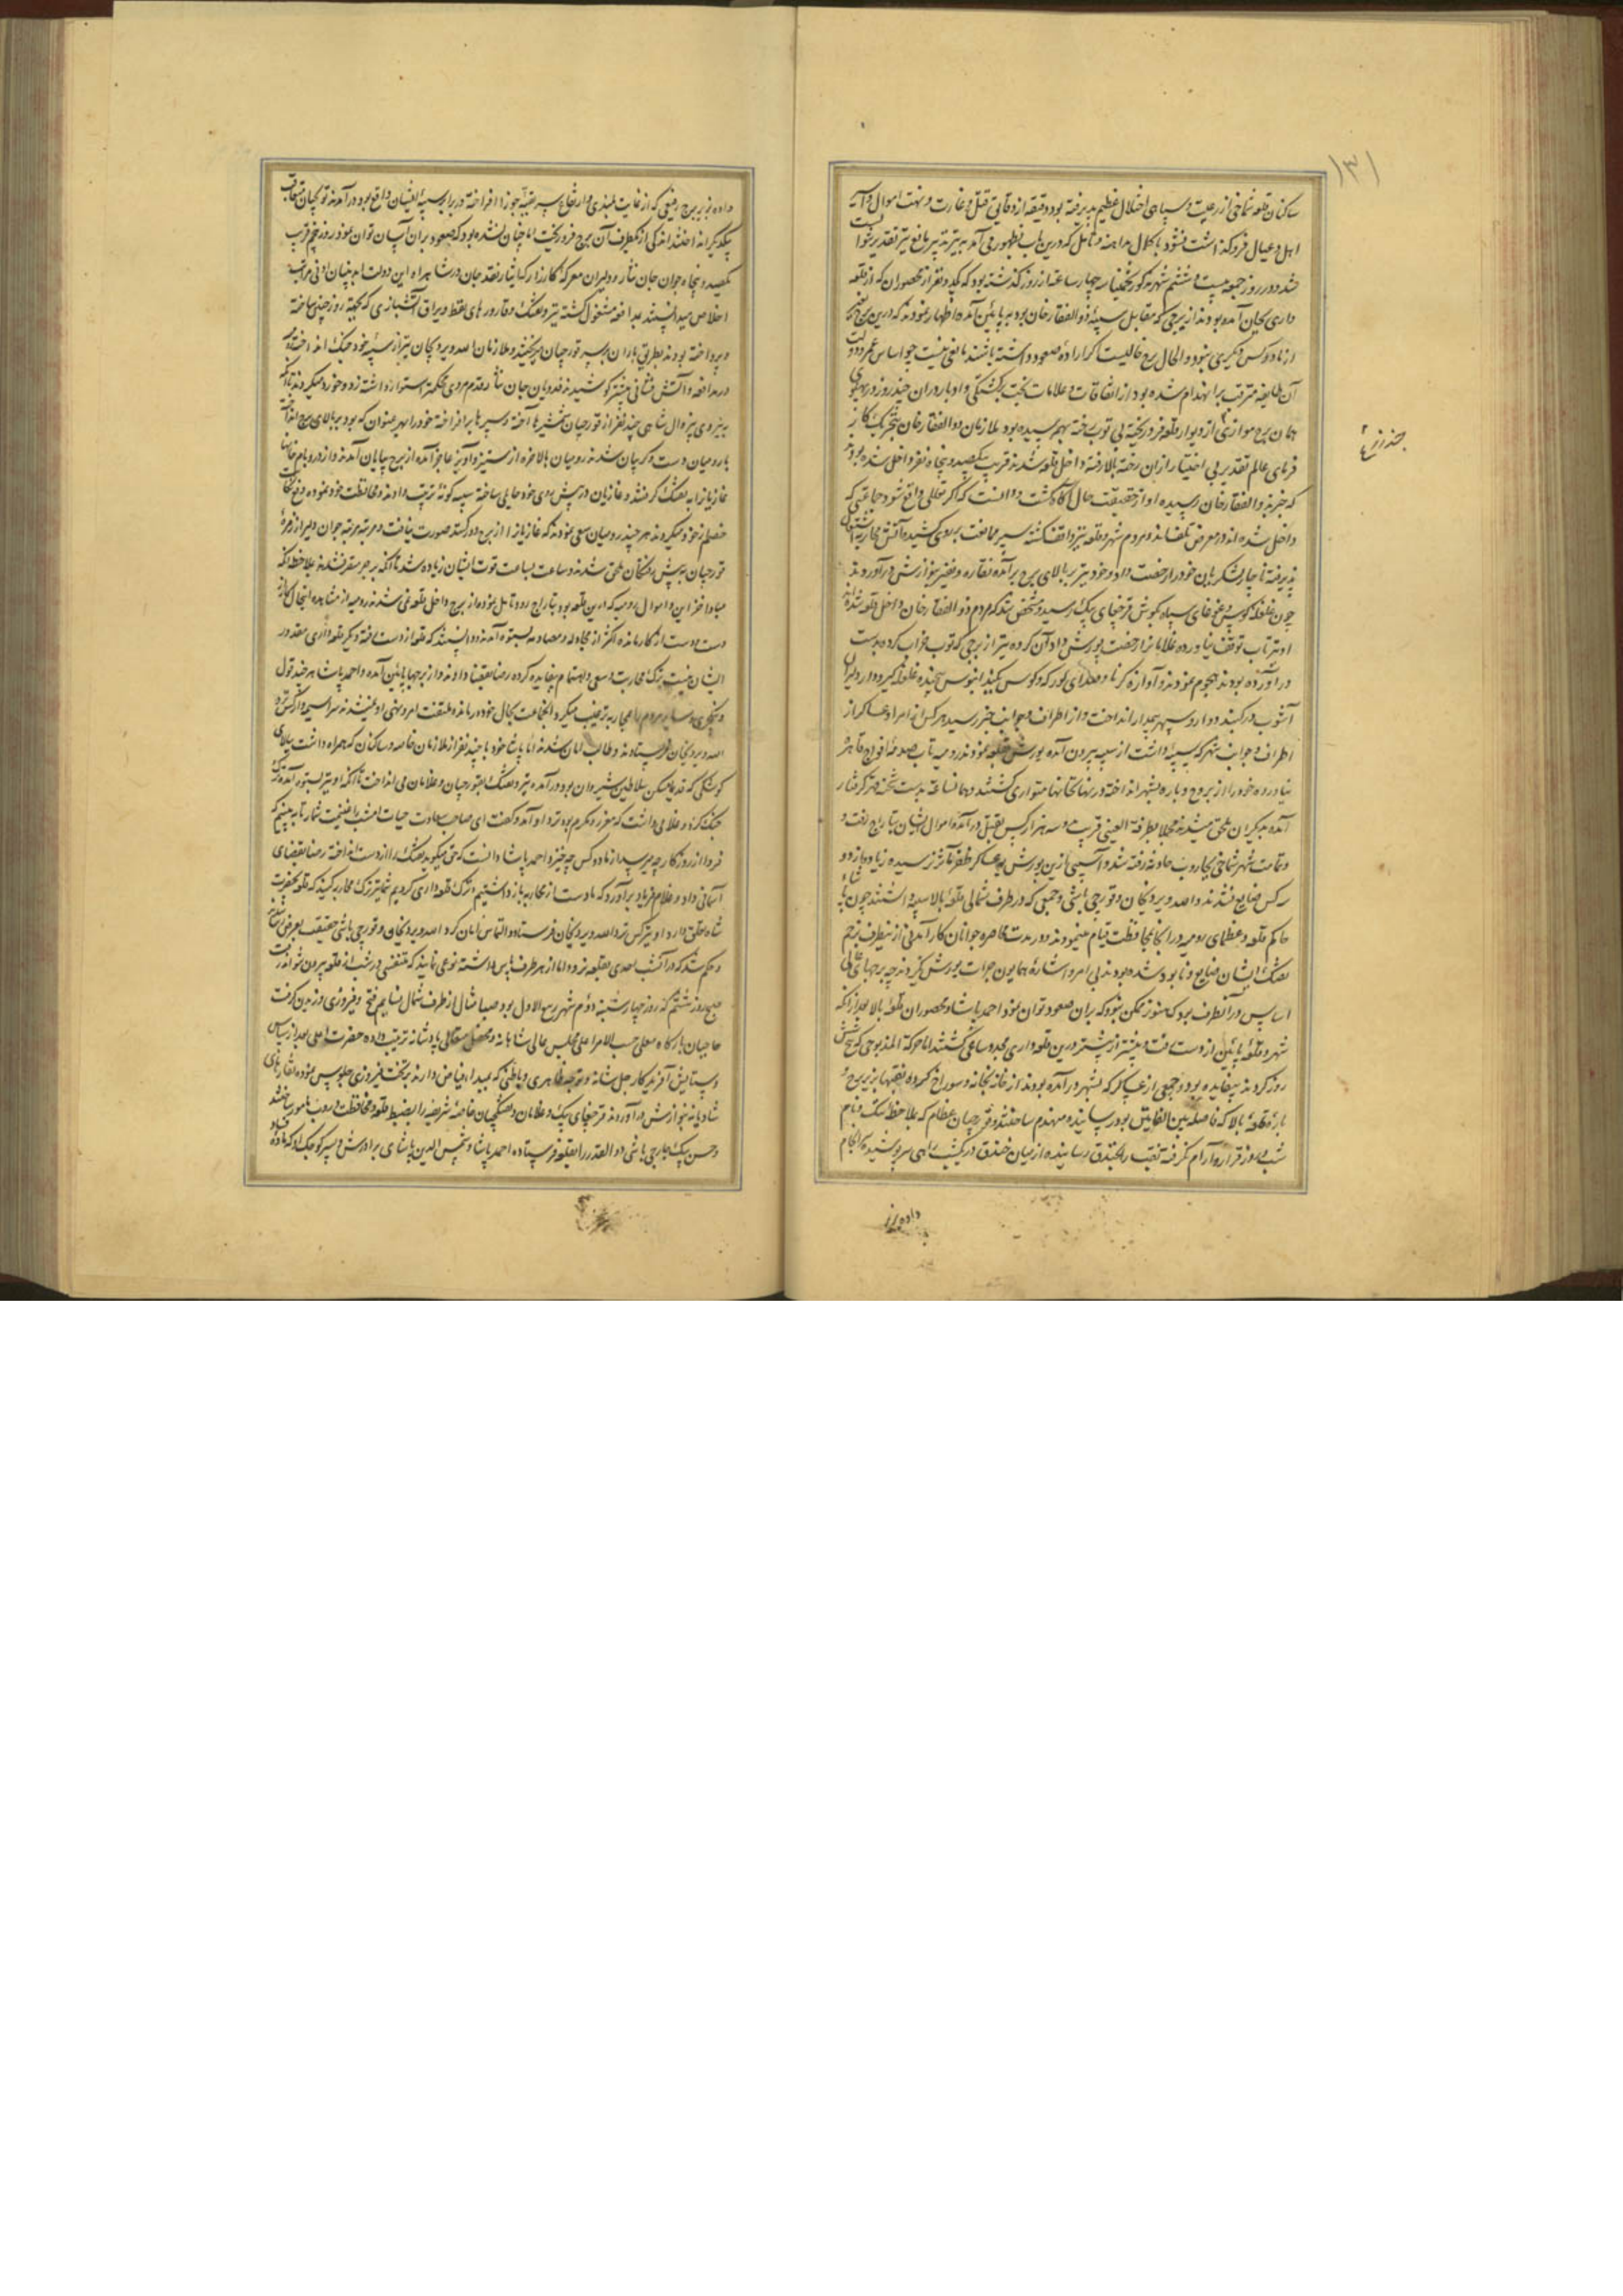 ۱۳۱
ساکنان قلعه شماخی از رعیت و سپاهی اختلال عظیم پذیرفته بود و دقیقه از دقایق قتل و غارت و نهب اموال و اسر
اهل و عیال فروگذاشت نشود با کمال مداهنه و تأمل که درین باب بظهور می آمد به تدبیر مانع تیر تقدیر نتوانست
شد و در روز جمعه بیست و ششم شهر مذکور تخمینا سه چهار ساعت از روز گذشته بود که یکدو نفر از محصوران که از قلعه
داری بجان آمده بودند از برجی که مقابل سیبه ذو الفقار خان بود به پائین آمده اظهار نمودند که درین برج بغیر
از ما دو کس دیگری نبود و الحال برج خالیست اگر اراده صعود داشته باشند مانعی نیست چو اساس عمر و دولت
آن طایفه مترقب بر انهدام شده بود از اتفاقات و علامات بخت برگشتگی و ادبار دران چند روز در پهلوی
همان برج موازی از دیوار قلعه فرو ریخته بی توپ رخنه بهم رسیده بود ملازمان ذو الفقار خان بتحریک کار
فرمای عالم تقدیر بی اختیار ازان رخنه بالا رفته داخل قلعه شدند قریب یکصد و پنجاه نفر داخل شده بودند
که خبر به ذو الفقار خان رسیده او از حقیقت حال آگاه گشت دانست که اگر تعللی واقع شود جماعتی که
داخل شده اند در معرض تلف اند و مردم شهر و قلعه نیز واقف گشته سپر ممانعت بروی کشیده آتش محاربه اشتعال
پذیرفته ناچار لشکریان خود را رخصت داد و خود نیز بر بالای برج برآمده نقاره و نفیر بنوازش درآوردند
چون غلغله کوس و غوغای سپاه بگوش قرچغای بیک رسید و مشخص شد که مردم ذو الفقار خان داخل قلعه شده اند
او نیز تاب توقف نیاورده غلامان را رخصت یورش داد آن گروه نیز از برجی که توپ خراب کرده بدست
درآورده بودند هجوم نمودند و آوازه کرنا و صدای کورکه و کوس
آشوب در گنبد دوار و سپهر بیمدار انداخت و از اطراف و جوانب خبر رسید هر کس از امرا و عساکر از
اطراف و جوانب شهر که سیبه داشت از سیبه بیرون آمده یورش بقلعه نمودند رومیه تاب صدمه افواج قاهره
نیاورده خود را از بروج و باره بشهر انداخته در نهانخانها متواری گشتند
آمده به دیگران ملحق میشدند مجملا بطرفة العینی قریب دو سه هزار کس بقتل درآمده اموال ایشان بتاراج رفت
و تمامت شهر شماخی بجاروب حادثه رفته شد و آسیبی ازین یورش بعساکر ظفر مآثر نرسیده زیاده از دو
سه کس ضایع نشدند و الله ویردیخان و قورچی باشی و جمعی که در طرف شمالی قلعه بالا سیبه داشتند چون پاشاء
حاکم قلعه و عظمای رومیه در انجا بمحافظت قیام مینمودند و در مدت محاصره جوانان کار آمدنی ازینطرف بزخم
تفنگ ایشان ضایع و نابود شده بودند بی امر و اشاره همایون جرات یورش نکردند چه برجهای عالی
اساس در آنطرف بود که هنوز ممکن نبود که بران صعود توان نمود احمد پاشا و محصوران قلعه بالا بعد از انکه
شهر و قلعه پائین از دست رفت بیشتر از پیشتر درین قلعه داری مجد و ساعی گشتند اما حرکة المذبوحی که پنج شش
روز کردند بیفایده بود و جمعی از عساکر که بشهر درآمده بودند از خانه بخانه سوراخ کرده نقبها بزیر برج و
باره قلعه بالا که فاصله بین القلعتین بود رسانیده منهدم ساختند و قورچیان عظام که بملاحظه ننگ و نام
شب و روز قرار و آرام نگرفته نقب را بخندق رسانیده از میان خندق
داده نزد
داده بر برج رفیعی که از غایت بلندی و ارتفاع سر بقبه جوزا افراخته در برابر سیبه ایشان واقع بود درآمدند توپچیان متعاقب
یکدیگر انداختند اندکی از یکطرف آن برج فرو ریخت اما چنان نشده بود که صعود بران آسان توان نمود روز پنجم قریب
یکصد و پنجاه جوان جان نثار و دلیران معرکه کارزار که ایثار نقد جان در شاهراه این دولت ابد بنیان ادنی مراتب
اخلاص میدانستند بمدافعه مشغول گشته تیر و تفنگ و قاروره های نفط و یراق آتشبازی که بجهة روز چنین ساخته
و پرداخته بودند بطریق باران بر سر قورچیان میریختند و ملازمان الله ویردیخان نیز از سیبه خود جنگ انداخته رومیه
در مدافعه و آتش فشانی بیشتر کوشیدند فدویان جان نثار قدم مردی محکم و استوار داشته زد و خورد میکردند تا آنکه
به نیروی اقبال شاهی چند نفر از قورچیان شمشیرها آخته و سپرها برافراخته خود را بهر عنوان که بود بر بالای برج انداخته
با رومیان دست و گریبان شدند رومیان بالاخره از ستیز و آویز عاجز آمده از برج بپایان آمدند و از در و بام خانها
غازیان را به تفنگ گرفتند و غازیان در پیش روی خود حایلی ساخته سیبه گونه ترتیب دادند و محافظت خود نموده دفع نکایت
خصم از خود میکردند هر چند رومیان سعی نمودند که غازیان را از برج دور کنند صورت نیافت و مرتبه مرتبه جوان دلیر از زمره
قورچیان به پیش رفتگان ملحق شدند و ساعت بساعت قوت ایشان زیاده شد تا آنکه بر برج مستقر شدند بملاحظه آنکه
مبادا خزاین و اموال رومیه که درین قلعه بود بتاراج رود تأمل نموده از برج داخل قلعه نمی شدند رومیه از مشاهده اینحال کار از
دست و دست از کار مانده اکثر از مجادله و مصادمه بستوه آمدند و دانستند که قلعه از دست رفته دیگر قلعه داری مقدور
ایشان نیست ترک محاربت و سعی و اهتمام بیفایده کرده رضا بقضا دادند و از برجها پائین آمده و احمد پاشا هر چند قول
و ینکچری و سایر مردم را بمحاربه ترغیب میکرد انجماعت بحال خود در مانده ملتفت امر و نهی او نمیشدند سراسیمه وار کس نزد
الله ویردیخان فرستادند و طالب امان شدند اما پاشا خود با چند نفر از ملازمان خاصه و ساکنان که همراه داشت ببالای
کوشکی که قدیما مسکن سلاطین شیروان بود درآمده تیر و تفنگ بقورچیان و غلامان می انداخت تا آنکه او نیز بستوه آمده ترک
جنگ کرد و غلامی داشت که معزز و مکرم بود نزد او آمد و گفت ای صاحب سعادت حیات امشب را غنیمت شمار تا به بینیم که
فردا از روزگار چه بر سر ما دو کس چه خیزد احمد پاشا دانست که حق میگوید تفنگ را از دست انداخته رضا بقضای
آسمانی داد و غلام فریاد برآورد که ما دست از محاربه باز داشتیم و ترک قلعه داری کردیم شما نیز ترک محاربه کنید که قلعه بحضرت
شاه تعلق دارد او نیز کس نزد الله ویردیخان فرستاد و التماس امان کرد الله ویردیخان و قورچی باشی حقیقت بعرض رسانیدند
و حکم شد که در آنشب احدی بقلعه نرود اما از هر طرف پاس داشته نوعی نمایند که متنفسی در شب از قلعه بیرون نتواند رفت
صبح روز ششم که روز چهارشنبه دوم شهر ربیع الاول بود صبا مثال از طرف شمال نسایم فتح و فیروزی وزیدن گرفت
حاجبان بارگاه معلی حسب الامر اعلی مجلس عالی شاهانه و محفل متعالی پادشانه ترتیب داده حضرت اعلی بعد از سپاس
و ستایش آفریدگار جل شانه و توجه ظاهری و باطنی که بمبدا فیاض دارند بر تخت فیروزی جلوس نموده نقارهای
شادیانه بنوازش درآوردند قرچغای بیک و غلامان و تفنگچیان خاصه شریفه را بضبط قلعه و محافظت دروب مامور ساختند
و حسن بیک جارچی باشی ذو القدر را بقلعه فرستاده احمد پاشا و شمس الدین پاشای برادرش و پسر کوچک او که